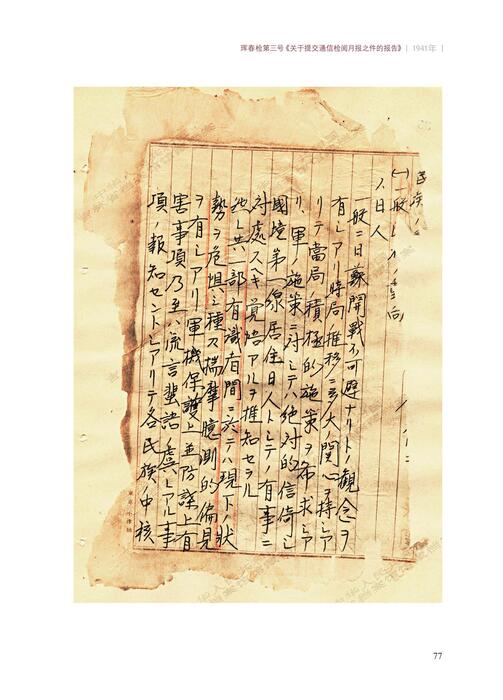 珲春检第三号《关于提交通信检阅月报之件的报告》 | 1941年 |
民族ノ
(一)一般 人ノ意向
日人
一般ニ日蘇開戦不可避ナリトノ観念ヲ
有シアリ時局ノ推移ニ多大ノ関心ヲ持シア
リテ當局ノ積極的施策ヲ希求シア
リ、軍ノ施策ニ対シテハ絶対的信倚シ
國境第一線居住日人トシテノ有事ニ
対處スヘキ覚悟アルヲ推知セラル
然レ共一部有識者間ニ於テハ現下ノ状
勢ヲ危惧シ種々揣摩臆測的偏見
ヲ有シアリ軍機保護上並防諜上有
害事項乃至ハ流言蜚語ノ虞レアル事
項ノ報知セントシアリテ各民族ノ中核
77